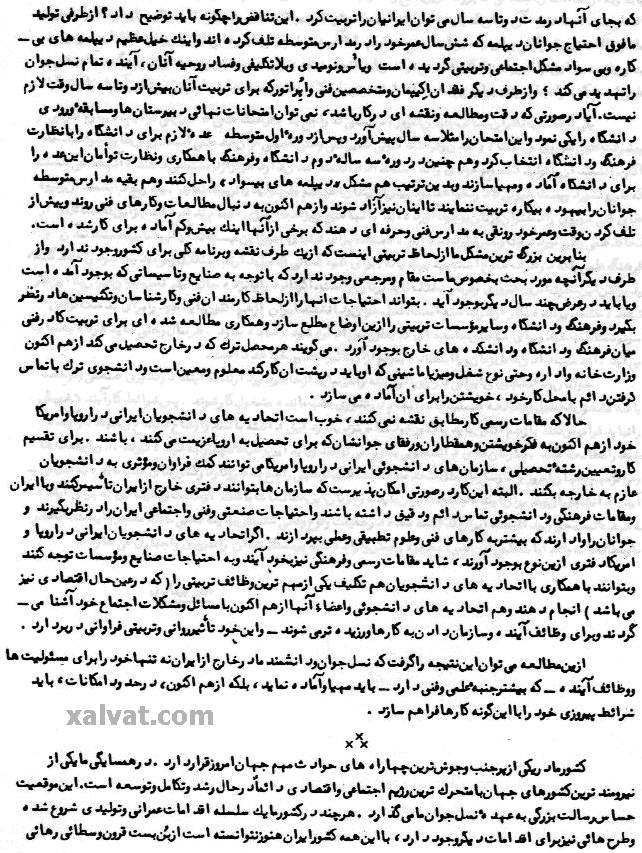 که بجای آنها در مدت دو تا سه سال می توان ایرانیان را تربیت کرد . این تناقض را چگونه باید توضیح داد ؟ از طرفی تولید
مافوق احتیاج جوانان دیپلمه که شش سال عمر خود را در مدارس متوسطه تلف کرده اند و اینک خیل عظیم دیپلمه های بی ــ
کاره و بی سواد مشکل اجتماعی و تربیتی گردیده است و یأس و نومیدی و بلاتکلیفی و فساد روحیه آنان ، آینده تمام نسل جوان
را تهدید می کند ؛ و از طرف دیگر فقدان تکنیسین ومتخصصین فنی و اپراتور که برای تربیت آنان بیش از دو تا سه سال وقت لازم
نیست . آیا در صورتی که دقت و مطالعه و نقشه ای در کار باشد ، نمی توان امتحانات نهائی دبیرستان ها و مسابقه ورودی
دانشگاه را یکی نمود و این امتحان را مثلا سه سال پیش آورد و پس از دوره اول متوسطه عده لازم برای دانشگاه را با نظارت
فرهنگ و دانشگاه انتخاب کرد و هم چنین در دوره سه ساله دوم دانشگاه و فرهنگ با همکاری و نظارت توأمان این عده را
برای دانشگاه آماده و مهیا سازند و بدین ترتیب هم مشکل ده دیپلمه های بیسواد ، را حل کنند و هم بقیه مدارس متوسطه
جوانان را بیهوده بیکاره تربیت ننمایند تا اینان نیز آزاد شوند و از هم اکنون به دنبال مطالعات و کارهای فنی روند و پیش از
تلف کردن وقت و عمر خود رونقی به مدارس فنی و حرفه ای دهند که برخی از آنها اینک بیش و کم آماده برای کار شده است .
بنا برین بزرگ ترین مشکل ما از لحاظ تربیتی اینست که از یک طرف نقشه و برنامه کلی برای کشور وجود ندارد و از
طرف دیگر آنچه مورد بحث بخصوص ماست مقام و مرجعی وجود ندارد که با توجه به صنایع و تاسیساتی که بوجود آمده است
و یا باید در عرض چند سال دیگر بوجود آید . بتواند احتیاجات آنها را از لحاظ کارمندان فنی و کارشناسان و تکنیسین ها در نظر
بگیرد و فرهنگ و دانشگاه و سایر مؤسسات تربیتی را ازین اوضاع مطلع سازد و همکاری مطالعه شده ای برای تربیت کادر فنی
میان فرهنگ و دانشگاه و دانشکده های خارج بوجود آورد . می گویند هر محصل ترک که در خارج تحصیل می کند از هم اکنون
وزارت خانه و اداره وحتی نوع شغل و میز یا ماشینی که او باید در پشت آن کار کند معلوم و معین است و دانشجوی ترک با تماس
گرفتن دائم با محل کار خود ، خویشتن را برای آن آماده می سازد .
حالا که مقامات رسمی کار مطابق نقشه نمی کنند ، خوب است اتحادیه های دانشجویان ایرانی در اروپا و امریکا
خود از هم اکنون به فکر خویشتن و همقطاران و رفقای جوانشان که برای تحصیل به اروپا عزیمت می کنند ، باشند . برای تقسیم
کار و تعیین رشته تحصیلی ، سازمان های دانشجوئی ایرانی در اروپا و امریکا می توانند کمک فراوان و مؤثری به دانشجویان
عازم به خارجه بکنند . البته این کار در صورتی امکان پذیر است که سازمان ها بتوانند دفتری خارج از ایران تأسیس کنند و با ایران
و مقامات فرهنگی و دانشجوئی تماس دائم و دقیق داشته باشند و احتیاجات صنعتی و فنی و اجتماعی ایران را در نظر بگیرند و
جوانان را وادارند که بیشتر به کارهای فنی و علوم تطبیقی و عملی بپردازند . اگر اتحادیه های دانشجویان ایرانی در اروپا و
امریکا دفتری ازین نوع بوجود آورند ، شاید مقامات رسمی و فرهنگی نیز بخود آیند و به احتیاجات صنایع و مؤسسات توجه کنند
و بتوانند با همکاری با اتحادیه های دانشجویان هم تکلیف یکی از مهم ترین وظائف تربیتی را ( که در عین حال اقتصادی نیز
می باشد ) انجام دهند و هم اتحادیه های دانشجوئی و اعضاء آنها از هم اکنون با مسائل و مشکلات اجتماع خود آشنا می ــ
گردند و برای وظائف آینده و سازمان دادن به کارها ورزیده تر می شوند ــ و این خود تأثیر روانی و تربیتی فراوانی در بر دارد .
ازین مطالعه می توان این نتیجه را گرفت که نسل جوان و دانشمند ما در خارج از ایران نه تنها خود را برای مسئولیت ها
و وظائف آینده ــ که بیشتر جنبه علمی و فنی دارد ــ باید مهیا و آماده نماید ، بلکه از هم اکنون ، در حدود امکانات ، باید
شرائط پیروزی خود را با این گونه کارها فراهم سازد .
xalvat.com
×××
کشور ما در یکی از پر جنب و جوش ترین چهار راه های حوادث مهم جهان امروز قرار دارد . در همسایگی ما یکی از
نیرومند ترین کشورهای جهان با متحرک ترین رژیم اجتماعی و اقتصادی دائماً در حال رشد و تکامل و توسعه است . این موقعیت
حساس رسالت بزرگی به عهده نسل جوان ما می گذارد . هر چند در کشور ما یک سلسله اقدامات عمرانی و تولیدی شروع شده
و طرح هائی نیز برای اقدامات دیگر وجود دارد ، با این همه کشور ایران هنوز نتوانسته است از بُن بست قرون وسطائی رهائی